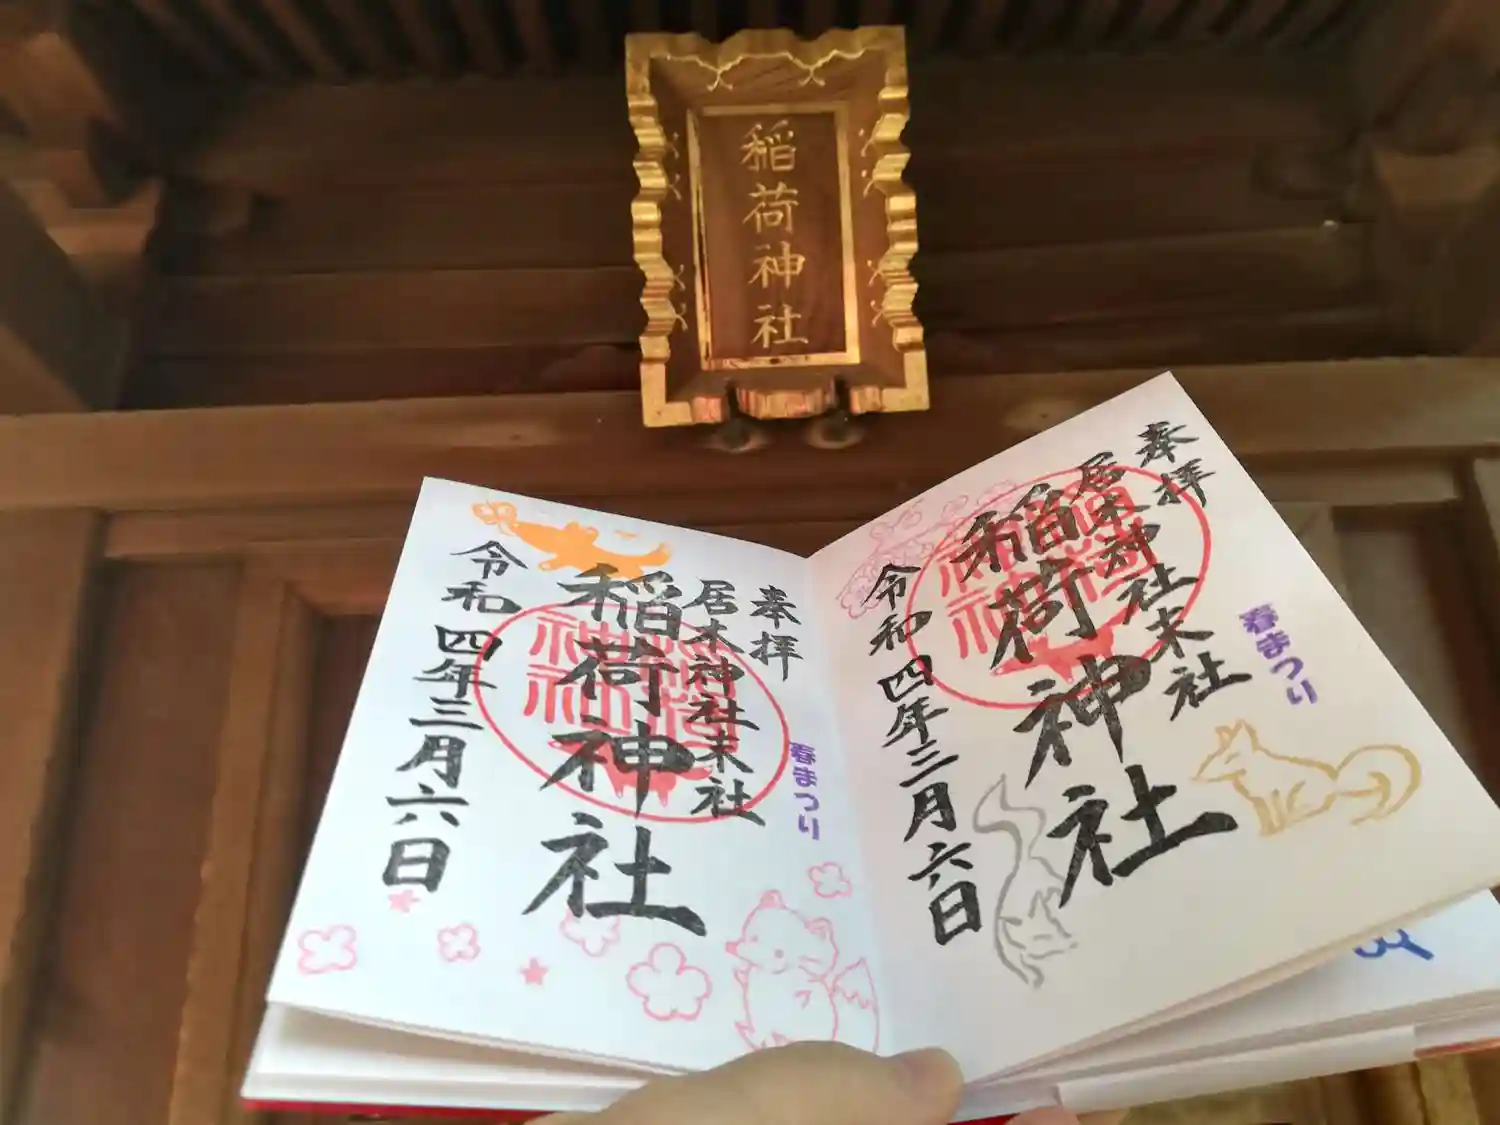 稲荷神社
奉拝
居木神社末社
稲荷神社
令和四年三月六日
春まつり
稲荷神社
奉拝
居木神社末社
稲荷神社
令和四年三月六日
春まつり
稲荷神社